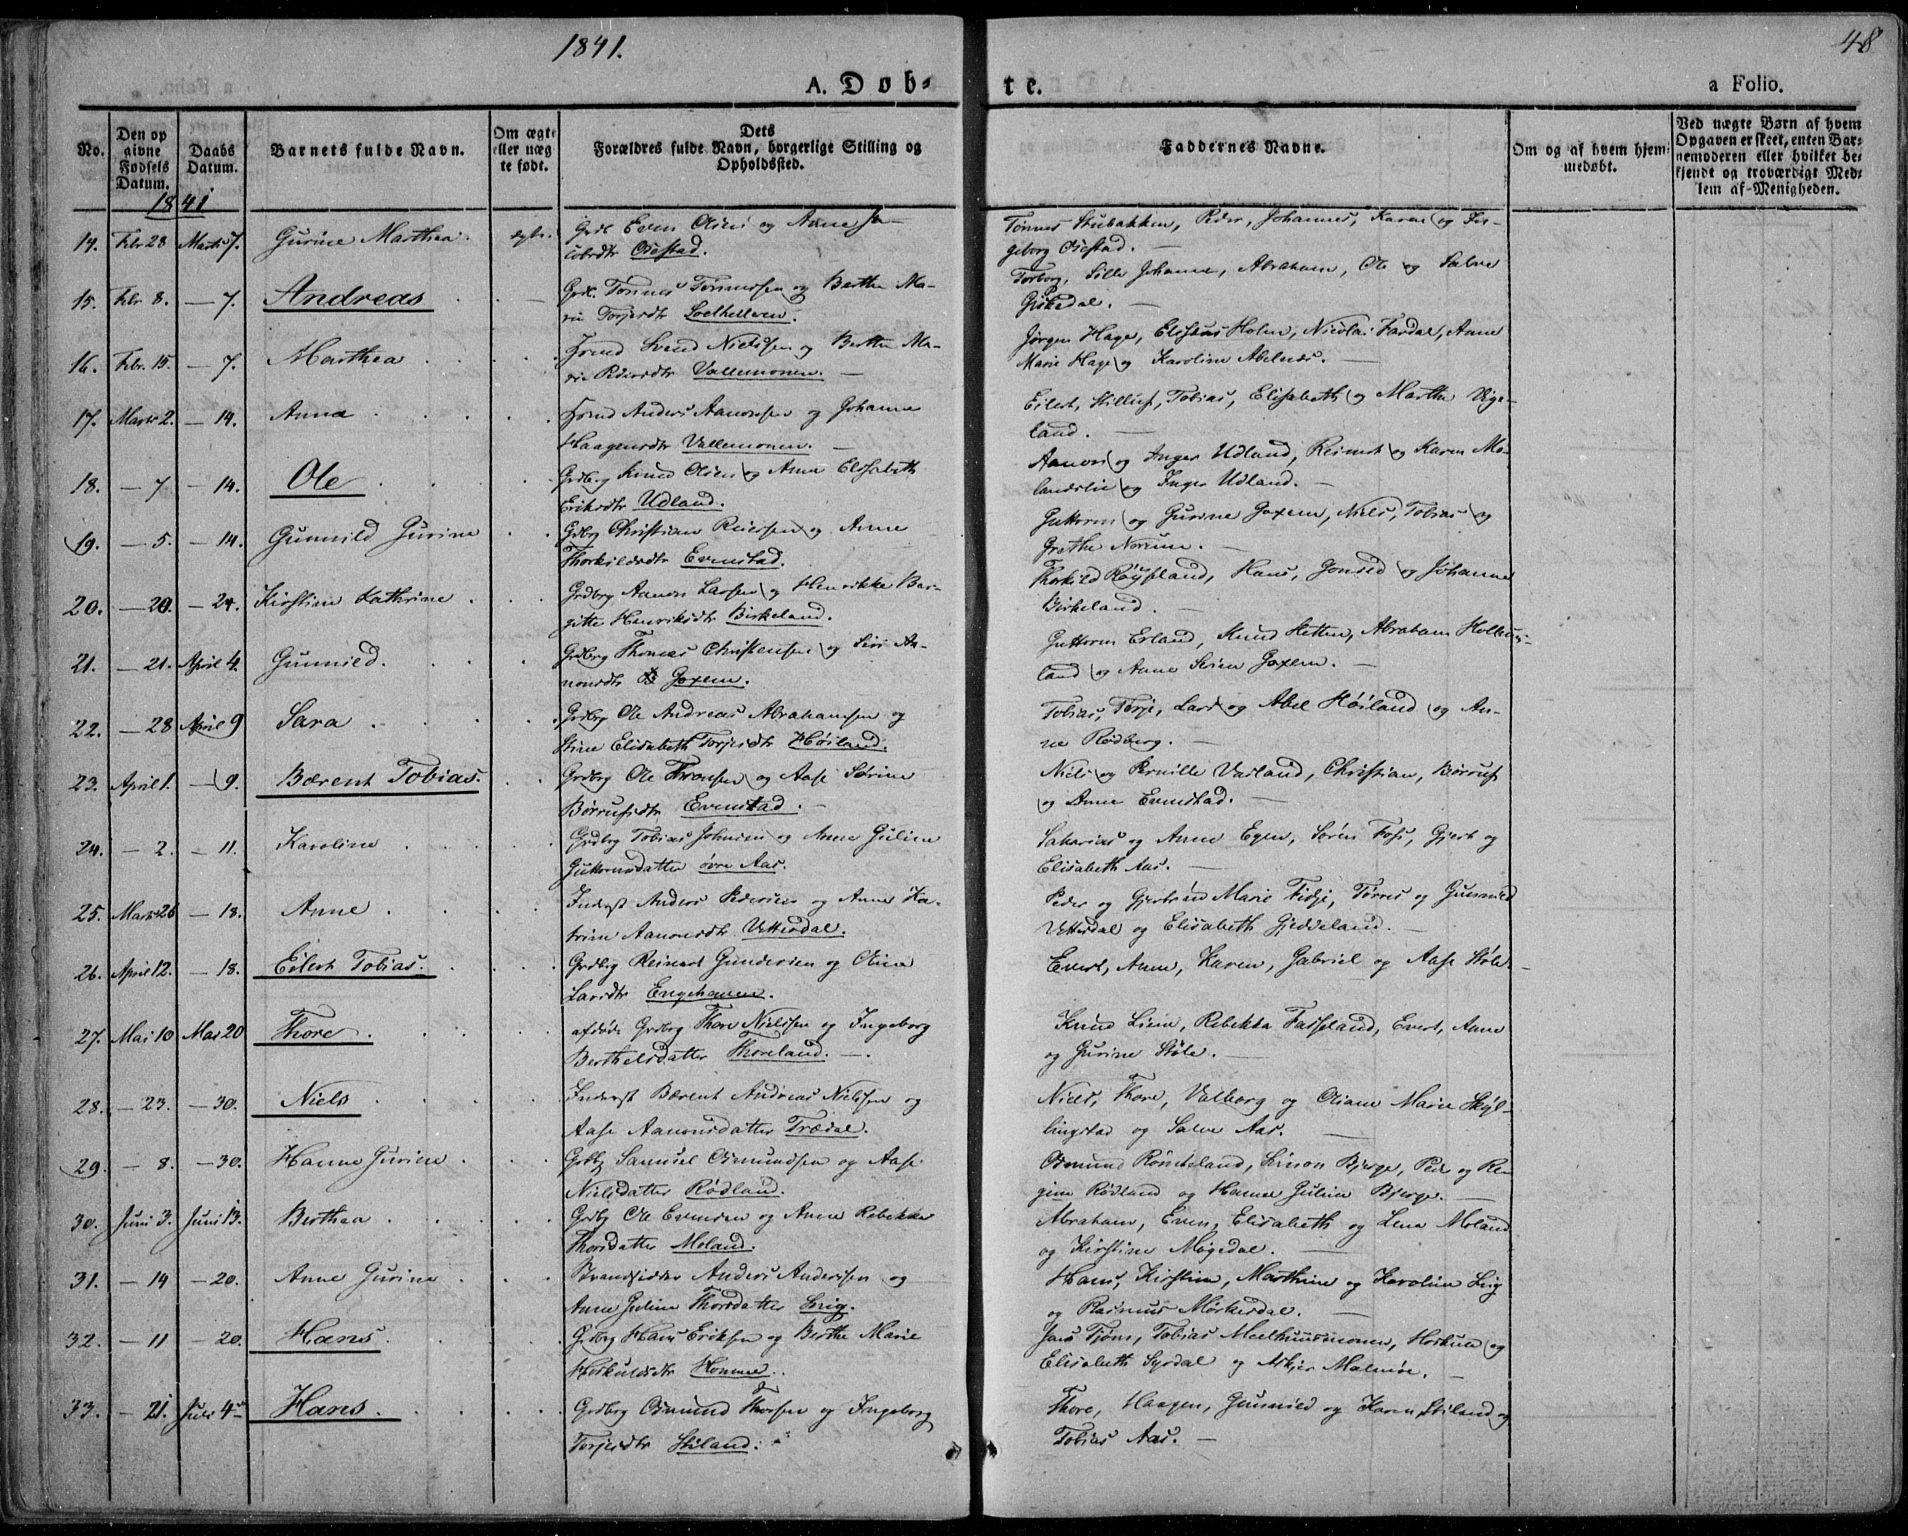 1841.
48
A. Døb-
te.
a Folio.
No.
Den op
givne
Fødsels
Datum.
Daabs
Datum.
Barnets fulde Navn.
Om ægte
eller uæg
te født.
Dets
Forældres fulde Navn, borgerlige Stilling og
Opholdssted.
Faddernes Navne.
Om og af hvem hjem
medøbt.
Ved uægte Børn af hvem
Opgaven er skeet, enten Bar-
nemoderen eller hvilket be-
kjendt og troværdigt Med-
lem af Menigheden.
1841
14. Febr 28 Marts 7. Gurine Marthea. Even Olsen og Anne Ja-
cobsdtr Osestad.
Tønnes Stubakken, Peder, Johannes, Karen og In-
geborg Osestad.
15. Febr. 8. — 7. Andreas Tønnes Tønnessen og Berthe Ma-
rie Torjesdtr
Torborg, Sille Johanne, Abraham, Ole og Salve
16. Febr. 15. — 7. Marthea Svend Nielssen og Berthe Ma-
rie Pedersdtr Vallemonen. —
Jørgen Hage, Holm, Nicolai Fardal, Anne
Marie Hage og Karoline Abelnes. —
17. Marts 2. — 14. Anna Anders Aanonsen og Johanne
Haagensdtr Vallemonen. —
Eilert, Tobias, Elisabeth og Marthe Vige-
land.
18. — 7 — 14. Ole Grdbrg Knud Olsen og Anne Elisabeth
Eriksdtr Udland.
Aanon og Inger Udland, Reinert og Karen Mo-
landslie og Inger Udland. —
19. — 5. — 14. Gunnild Gurine Grdbrg Christian Reiersen og Anne
Thorkildsdtr Evenstad.
Guttorm og Gurine Goxem, Niels, Tobias og
Grethe Noreim. —
20. — 20. — 24. Kirstine Kathrine Grdbrg Aanon Larsen og Henrikke Bir-
gitte Henriksdtr Birkeland.
Thorkild Røysland, Hans, Gonild og Johanne
Birkeland. —
21. — 21. April 4. Gunnild. Grdbrg Thomas Christensen og Siri Aa-
nonsdtr Goxem.
Guttorm Erland, Knud Hetten, Abraham
land og Anne Goxem. —
22. — 28 April 9 Sara Grdbrg Ole Andreas Abrahamsen og
Stine Elisabeth Torjesdtr Høiland.
Tobias, Terje, Lars og Abel Høiland og An-
ne Rødberg. —
23. April 1. — 9. Bærent Tobias. Grdbrg Ole Thronsen og Aase Sørine
Børrufsdtr Evenstad. —
Niels og Pernille Vatland, Christian, Børruf
og Anne Evenstad. —
24. — 2. — 11. Karoline Grdbrg Tobias Johnsen og Anne Guline
Guttormsdatter øvre Aas.
Sakarias og Anne Egen, Søren Foss, Gjert og
Elisabeth Aas. —
25. Marts 26 — 18. Anne Inderst Anders Pedersen og Anne Ka-
trine Aanonsdtr Vettesdal.
Peder og Gjertrud Marie Fidje, Tørres og Gunnild
Vettesdal og Elisabeth Gjeddeland. —
26. April 12. — 18. Eilert Tobias. Grdbrg Reinert Gundersen og Oline
Larsdtr
Evert, Anne, Karen, Gabriel og Aase Støle. —
27. Mai 10 Mai 20 Thore. afdøde Grdbrg Thore Nielssen og Ingeborg
Berthelsdatter Thoreland. —
Knud Liene, Rebekka Fasseland, Evert, Anne
og Gurine Støle.
28. — 23. — 30. Niels Inderst Bærent Andreas Nielssen og
Aase Aanonsdatter Trædal.
Niels, Thore, Valborg og Oliane Marie Skøl-
lingstad og Salve Aas. —
29. — 8. — 30. Hanne Gurine Grdbrg Samuel Osmundsen og Aase
Nielsdatter Rødland.
Osmund Røinkeland, Simon Bjerge, Peder og Re-
gine Rødland og Hanne Guline Bjerge. —
30. Juni 3. Juni 13. Berthea Grdbrg Ole Evensen og Anne Rebekka
Thorsdatter Moland.
Abraham, Even, Elisabeth og Lena Moland
og Kirstine Møgedal. —
31. — 14 — 20. Anne Gurine Strandsidder Anders Anderssen og
Anne Guline Thorsdatter Snig.
Hans, Kirstine, Marthine og Karoline Snig
og Rasmus Mørkesdal. —
32. — 11 — 20. Hans Grdbrg Hans Eriksen og Berthe Marie
Hoskuldsdtr Homme.
Jens Tjom, Tobias Meelhuusmonen, Hoskuld og
Elisabeth Syrdal og Asbjør Malmøe. —
33. — 21. Juli 4 Hans. Grdbrg Osmund Thorsen og Ingeborg
Torjesdtr Stiland.
Thore, Haagen, Gunnild og Karen Stiland og
Tobias Aas. —